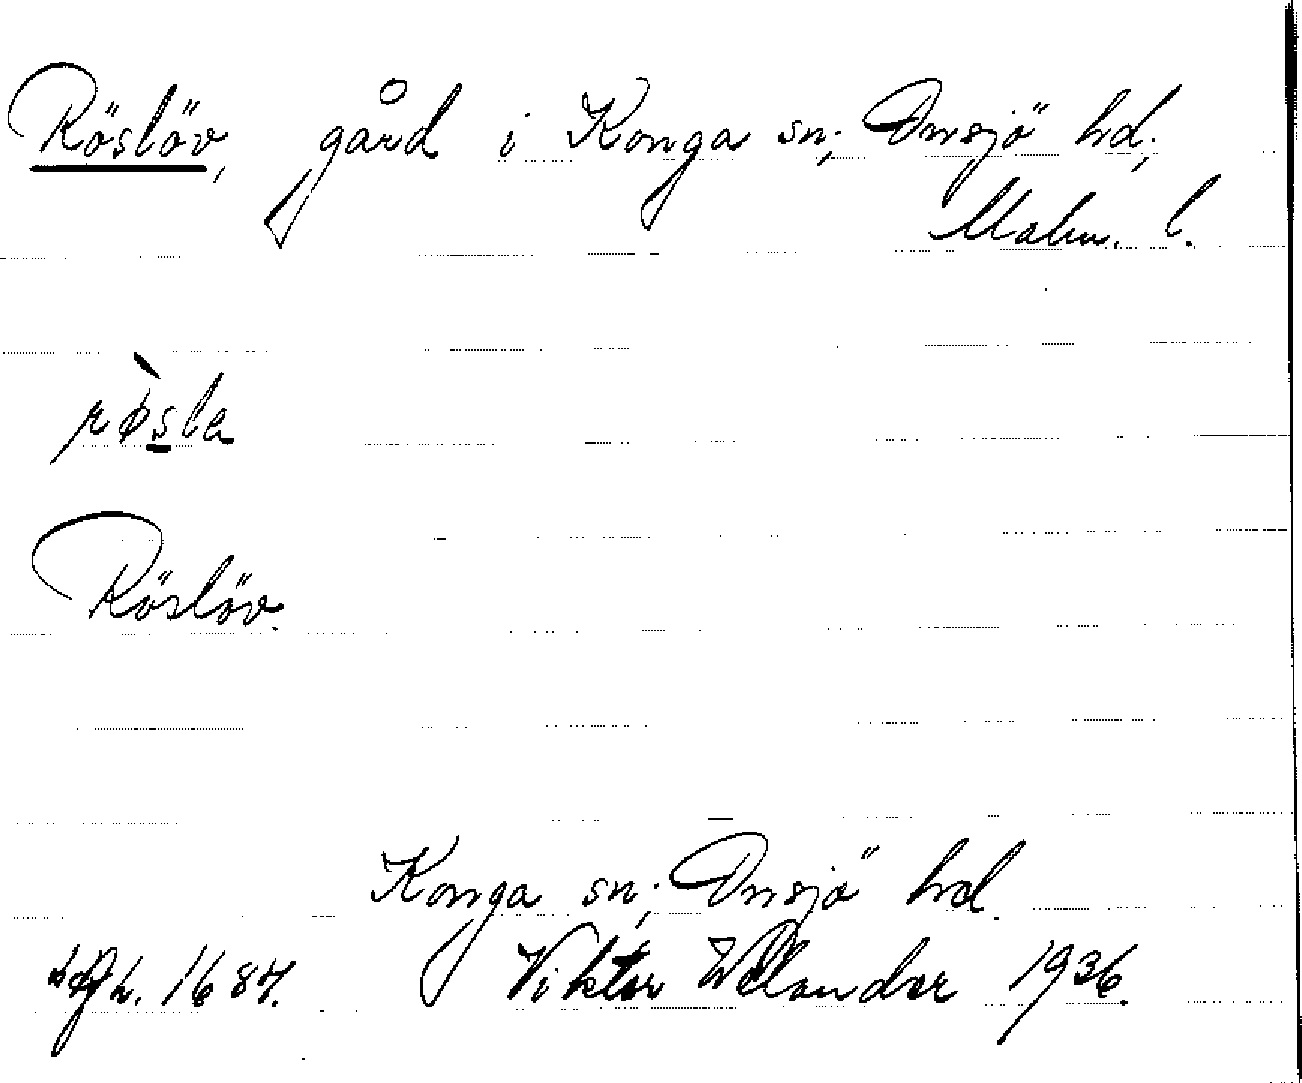 Röslöv, gård i Konga sn; Onsjö hd;
Malm. l.
rø̀sla
Röslöv.
Konga sn; Onsjö hd.
1687. Viktor Welander 1936.